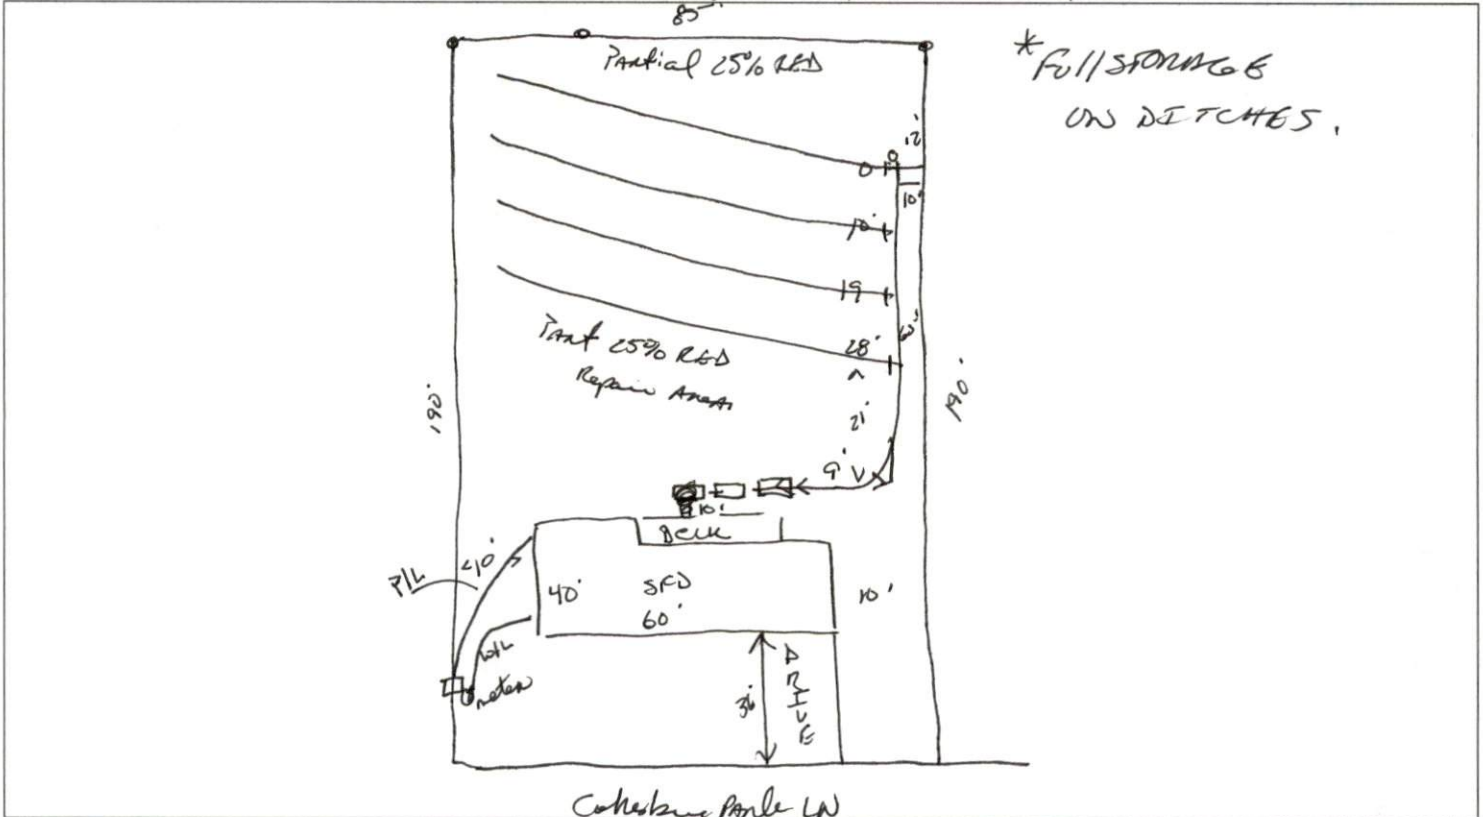 85'
Partial 25% RED
* Full STORAGE
ON DITCHES.
12'
0
10'
10'
19
60'
28'
Part 25% RED
Repair Area
21'
190'
190'
9'
10'
DECK
P/L
<10'
40'
SFD
60'
10'
W/L
meter
36'
DRIVE
Park LN